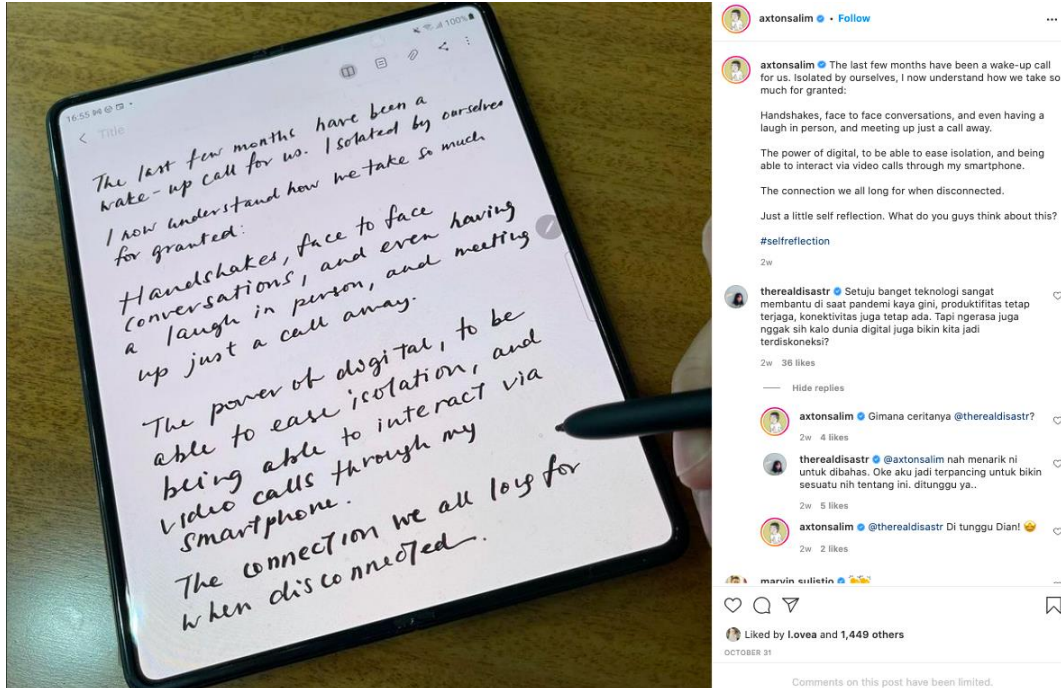 16:55
100%
Title
The last few months have been a
wake-up call for us. Isolated by ourselves
I now understand how we take so much
for granted:
Handshakes, face to face
conversations, and even having
a laugh in person, and meeting
up just a call away.
The power of digital, to be
able to ease isolation, and
being able to interact via
video calls through my
smartphone.
The connection we all long for
when disconnected.
axtonsalim • Follow
axtonsalim The last few months have been a wake-up call
for us. Isolated by ourselves, I now understand how we take so
much for granted:
Handshakes, face to face conversations, and even having a
laugh in person, and meeting up just a call away.
The power of digital, to be able to ease isolation, and being
able to interact via video calls through my smartphone.
The connection we all long for when disconnected.
Just a little self reflection. What do you guys think about this?
#selfreflection
2w
therealdisastr Setuju banget teknologi sangat
membantu di saat pandemi kaya gini, produktifitas tetap
terjaga, konektivitas juga tetap ada. Tapi ngerasa juga
nggak sih kalo dunia digital juga bikin kita jadi
terdiskoneksi?
2w 36 likes
Hide replies
axtonsalim Gimana ceritanya @therealdisastr?
2w 4 likes
therealdisastr @axtonsalim nah menarik ni
untuk dibahas. Oke aku jadi terpancing untuk bikin
sesuatu nih tentang ini. ditunggu ya..
2w 5 likes
axtonsalim @therealdisastr Di tunggu Dian! 🤩
2w 2 likes
marvin.sulistio 👏👏
Liked by l.ovea and 1,449 others
OCTOBER 31
Comments on this post have been limited.